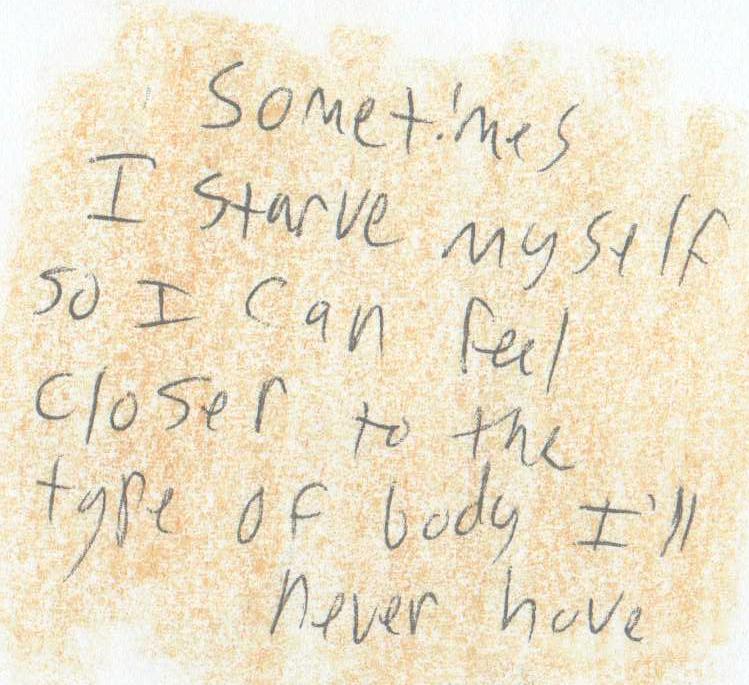 Sometimes
I starve myself
so I can feel
closer to the
type of body I'll
never have